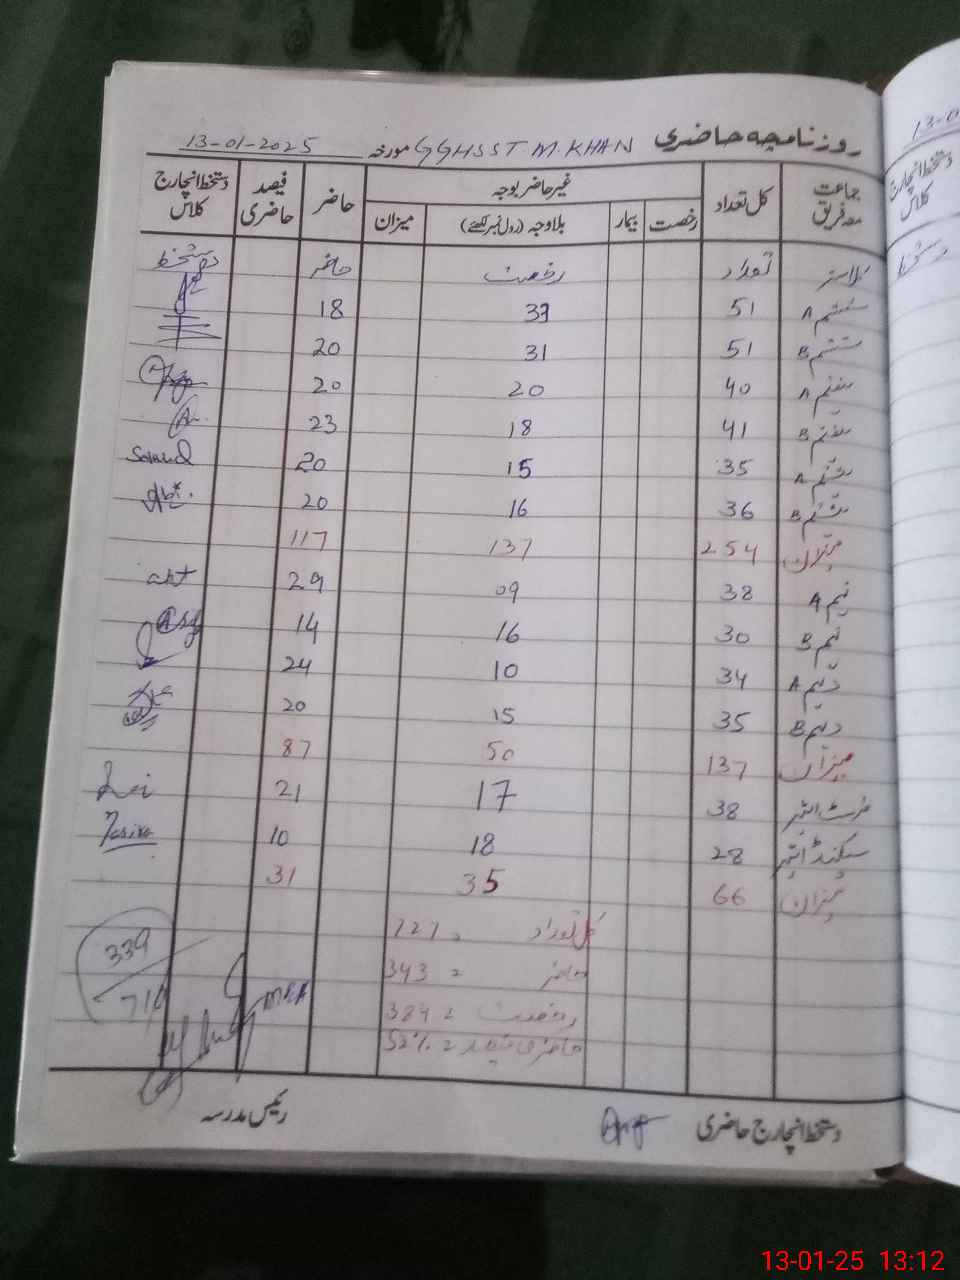 روزنامچہ حاضری GGHSST.M.KHAN مورخہ 13-01-2025
جماعت معہ فریق کل تعداد غیر حاضر بوجہ حاضر فیصد حاضری دستخط انچارج کلاس
رخصت بیمار بلاوجہ (رول نمبر لکھئے) میزان
کلاسز تعداد رخصت حاضر دستخط
ششم A 51 33 18
ششم B 51 31 20
ہفتم A 40 20 20
ہفتم B 41 18 23
ہشتم A 35 15 20
ہشتم B 36 16 20
میزان 254 137 117
نہم A 38 09 29
نہم B 30 16 14
دہم A 34 10 24
دہم B 35 15 20
میزان 137 50 87
فرسٹ ائیر 38 17 21
سیکنڈ ائیر 28 18 10
میزان 66 35 31
کل تعداد = 727
حاضر = 343
رخصت = 384
حاضری فیصد = 52%
339
دستخط انچارج حاضری رئیس مدرسہ
13-0
دستخط انچارج کلاس
دستخط
13-01-25 13:12